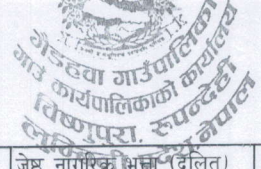 गैडहवा गाउँपालिका
गाउँ कार्यपालिकाको कार्यालय
विष्णुपुरा, रुपन्देही
लुम्बिनी प्रदेश, नेपाल
जेष्ठ नागरिक भत्ता (दलित)